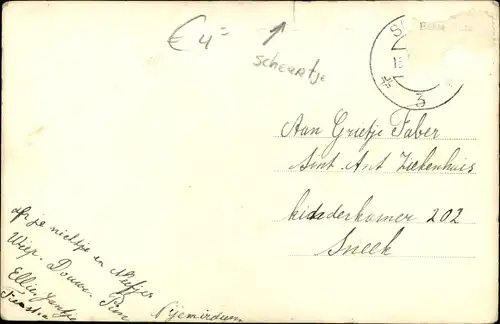 € 4=
scheertje
3
Aan Grietje Faber
Sint Ant Ziekenhuis
kinderkamer 202
Sneek
je nichtje en Neefjes
Wiep. Douwe. Pim
Ellie Jantje
Nijemirdum